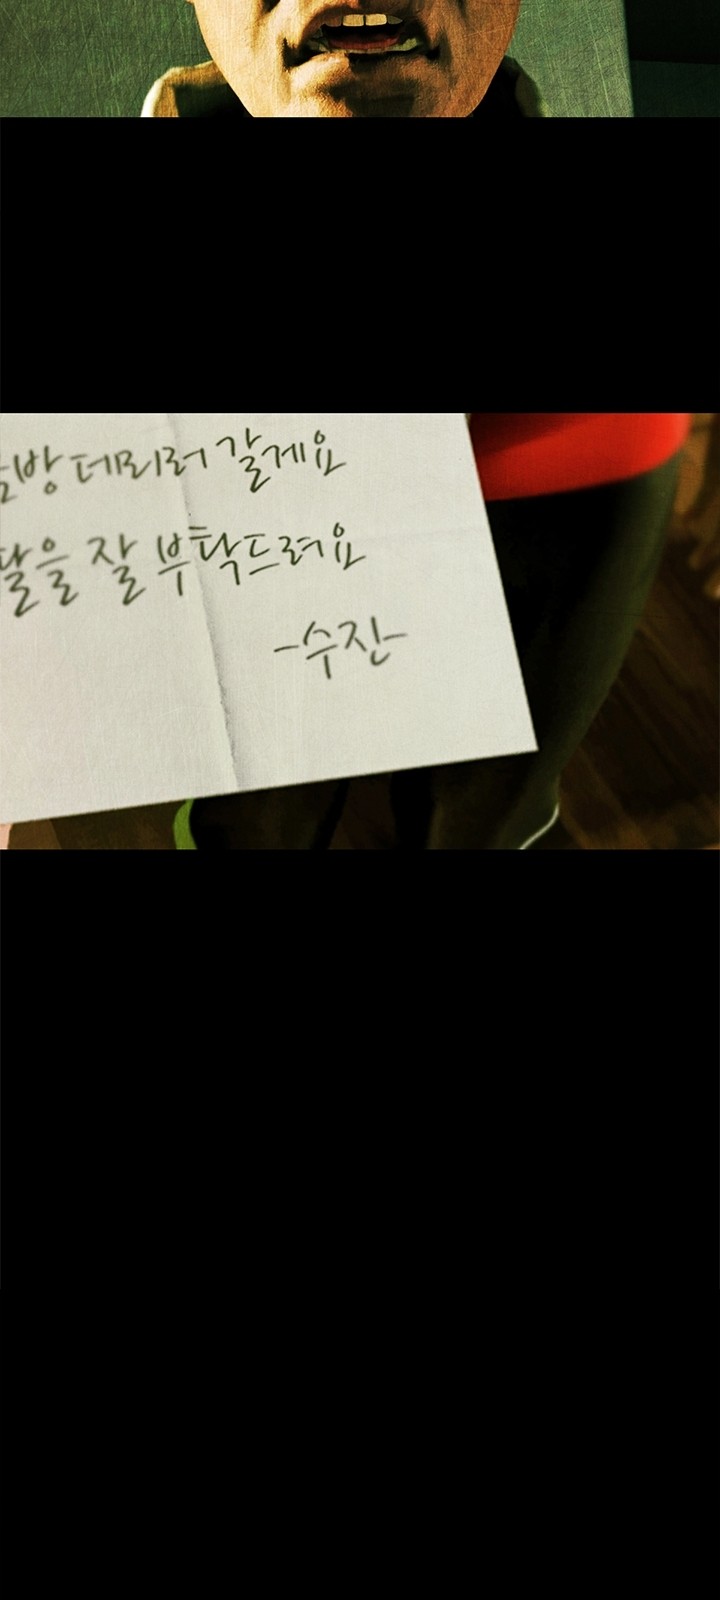 데리러 갈게요
잘 부탁드려요
-수진-